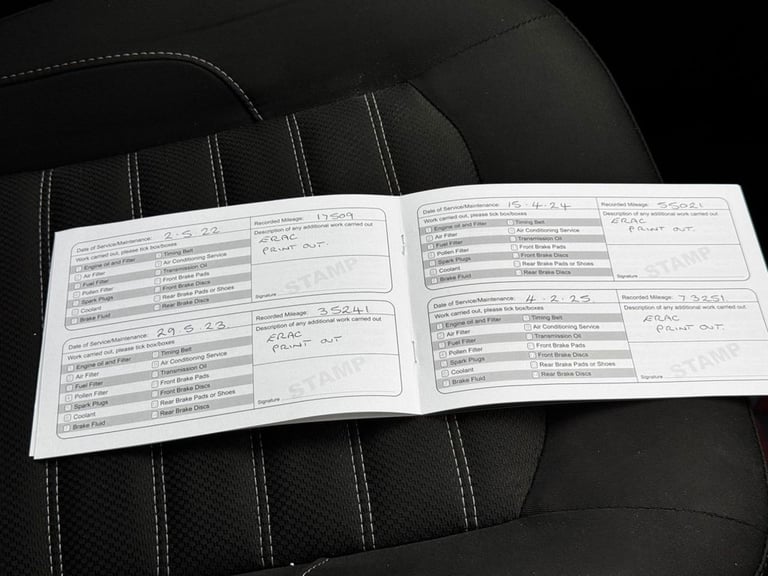 Date of Service/Maintenance: 2.5.22
Recorded Mileage: 17509
Work carried out, please tick box/boxes
Description of any additional work carried out
Engine oil and Filter
Timing Belt
ERAC
Air Filter
Air Conditioning Service
PRINT OUT.
Fuel Filter
Transmission Oil
Pollen Filter
Front Brake Pads
Spark Plugs
Front Brake Discs
Coolant
Rear Brake Pads or Shoes
Brake Fluid
Rear Brake Discs
STAMP
Signature
Date of Service/Maintenance: 29.5.23.
Recorded Mileage: 35241
Work carried out, please tick box/boxes
Description of any additional work carried out
Engine oil and Filter
Timing Belt
ERAC
Air Filter
Air Conditioning Service
PRINT OUT.
Fuel Filter
Transmission Oil
Pollen Filter
Front Brake Pads
Spark Plugs
Front Brake Discs
Coolant
Rear Brake Pads or Shoes
Brake Fluid
Rear Brake Discs
STAMP
Signature
Date of Service/Maintenance: 15.4.24
Recorded Mileage: 55021
Work carried out, please tick box/boxes
Description of any additional work carried out
Engine oil and Filter
Timing Belt
ERAC
Air Filter
Air Conditioning Service
PRINT OUT.
Fuel Filter
Transmission Oil
Pollen Filter
Front Brake Pads
Spark Plugs
Front Brake Discs
Coolant
Rear Brake Pads or Shoes
Brake Fluid
Rear Brake Discs
STAMP
Signature
Date of Service/Maintenance: 4.2.25.
Recorded Mileage: 73251
Work carried out, please tick box/boxes
Description of any additional work carried out
Engine oil and Filter
Timing Belt
ERAC
Air Filter
Air Conditioning Service
PRINT OUT.
Fuel Filter
Transmission Oil
Pollen Filter
Front Brake Pads
Spark Plugs
Front Brake Discs
Coolant
Rear Brake Pads or Shoes
Brake Fluid
Rear Brake Discs
STAMP
Signature